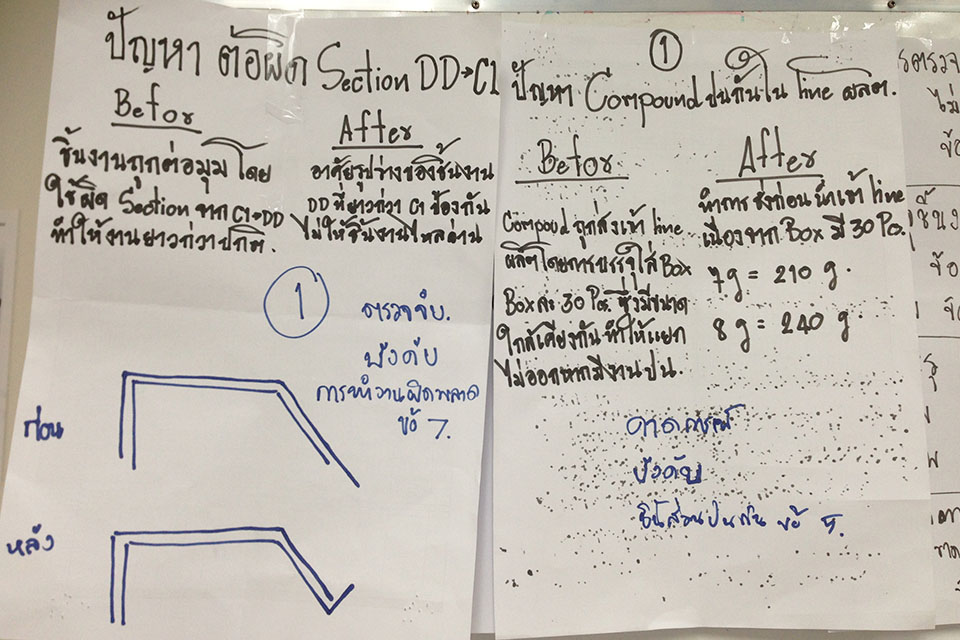 ปัญหา ต่อผิด Section DD→C1
Befor
ชิ้นงานถูกต่อมุม โดย
ใช้ผิด Section จาก C1→DD
ทำให้งานยาวกว่าปกติ.
After
อาศัยรูปร่างของชิ้นงาน
DD ที่ยาวกว่า C1 ป้องกัน
ไม่ให้ชิ้นงานไหลผ่าน
1
ตรวจจับ.
บังคับ
การทำงานผิดพลาด
ข้อ 7.
ก่อน
หลัง
1
ปัญหา Compound ปนกันใน line ผลิต.
Befor
Compoud ถูกส่งเข้า line
ผลิตโดยการบรรจุใส่ Box
Box ละ 30 Pc. ซึ่งมีขนาด
ใกล้เคียงกัน ทำให้แยก
ไม่ออกหากมีงานปน.
After
ทำการ ชั่งก่อนนำเข้า line
เนื่องจาก Box มี 30 Pc.
7g = 210 g.
8 g = 240 g.
คาดการณ์
บังคับ
ชิ้นส่วนปนกัน ข้อ 5.
ไม่